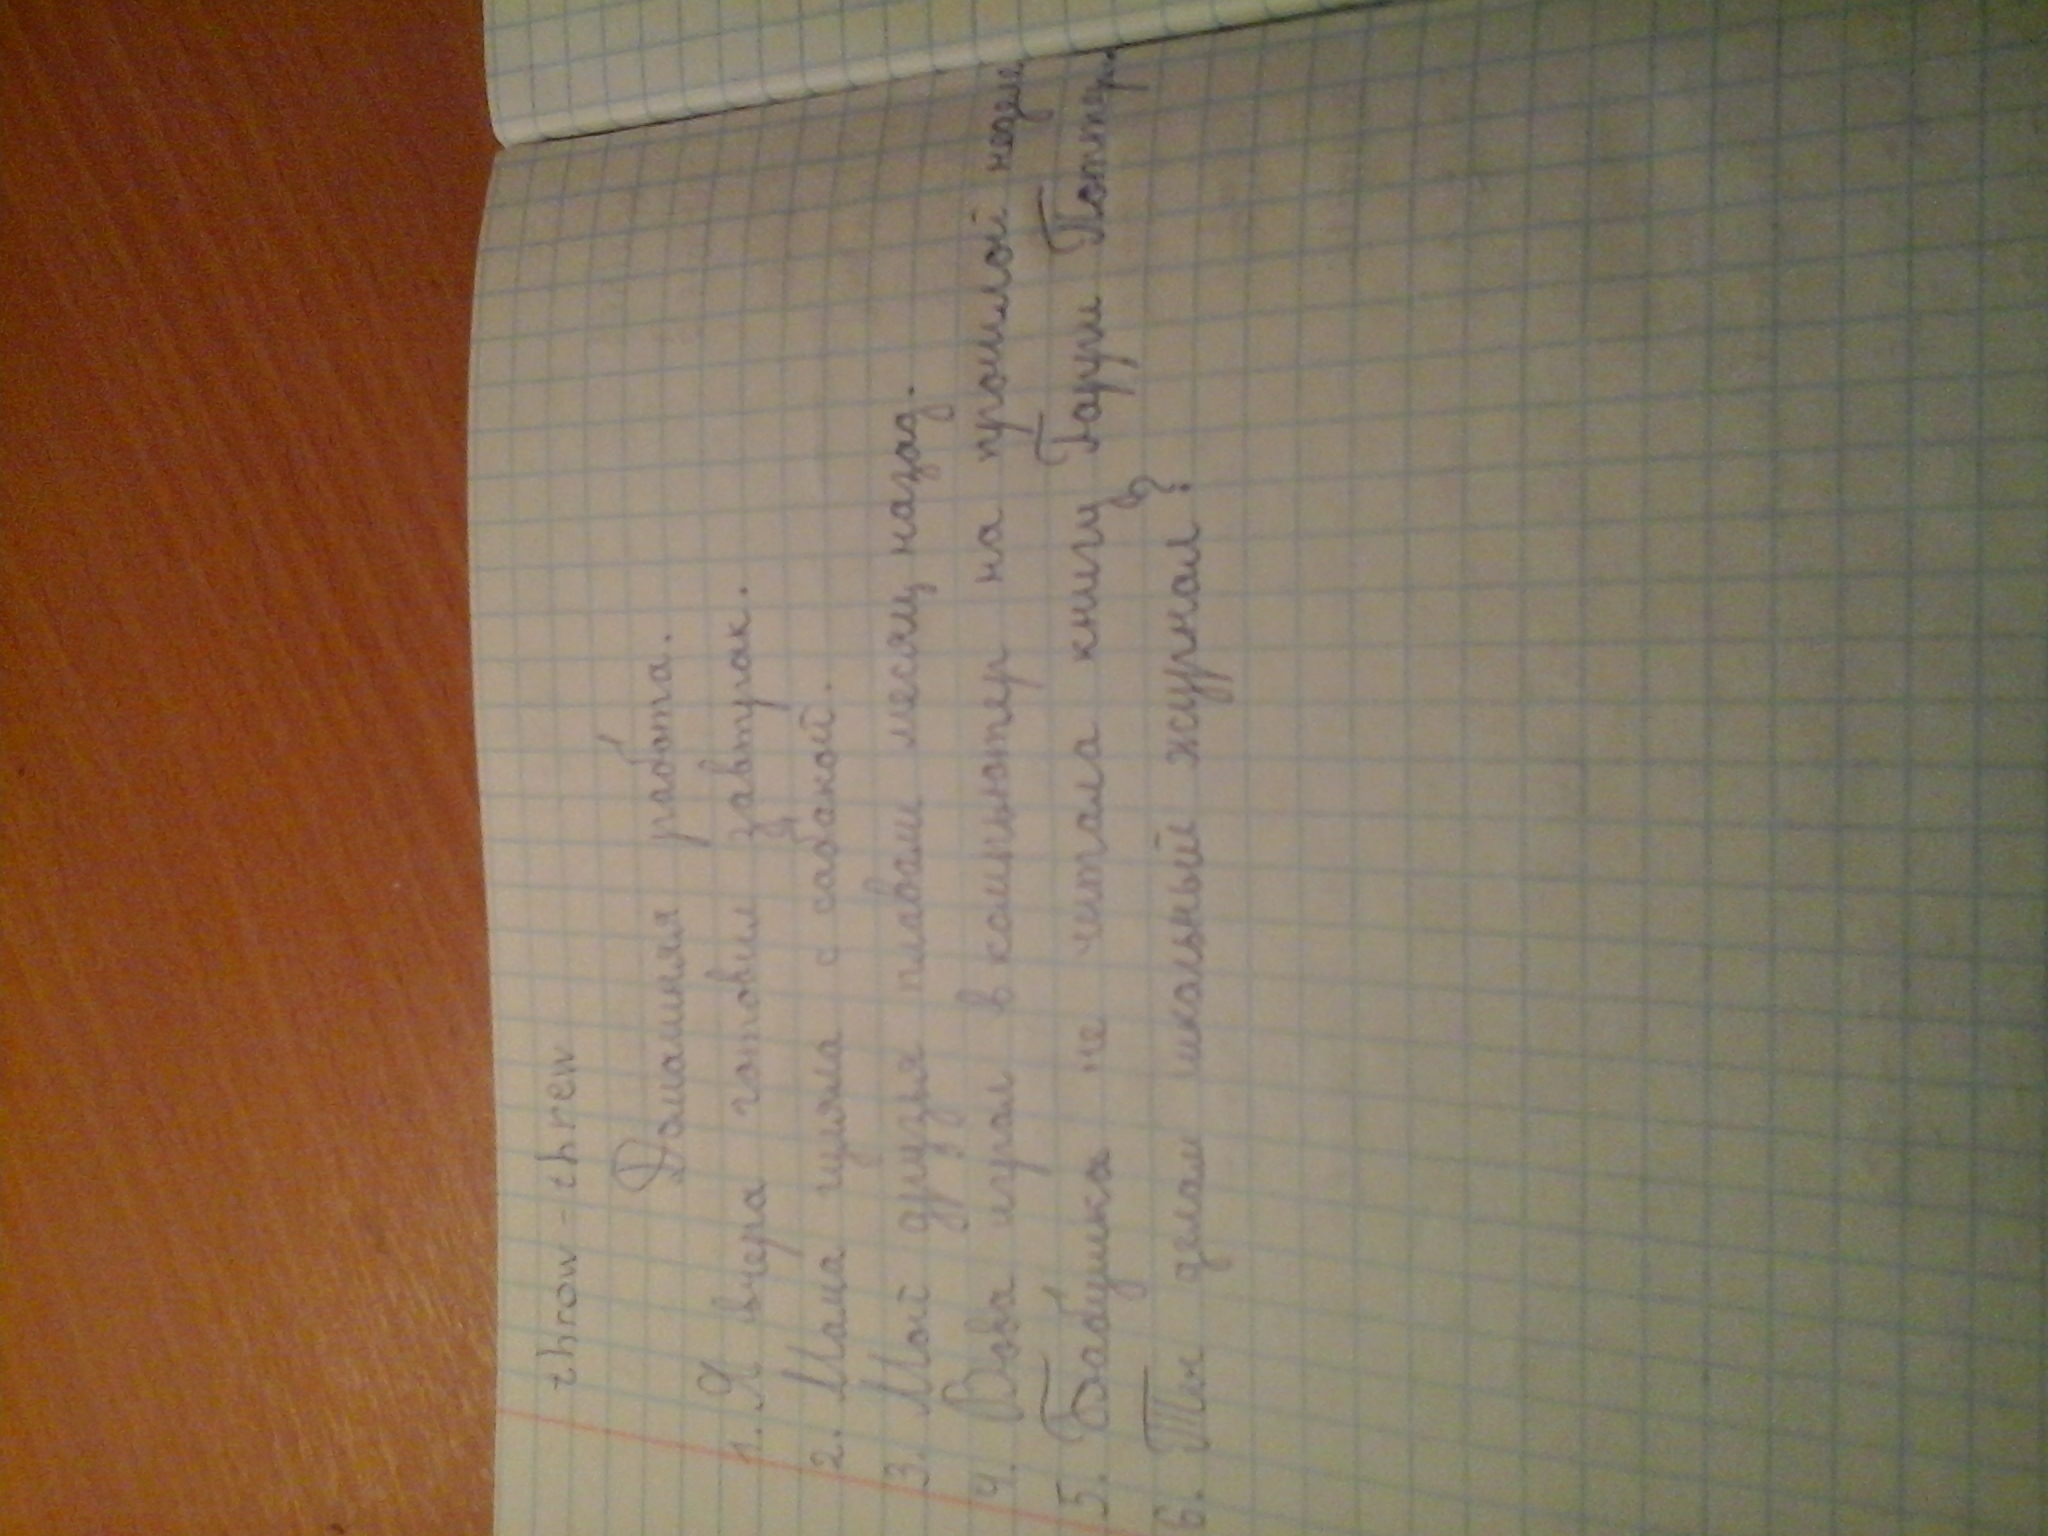 throw - threw
Домашняя работа.
1. Я вчера готовил завтрак.
2. Мама гуляла с сабакой.
3. Мой друзья плавали месяц назад.
4. Вова играл в компьютер на прошлой неделе
5. Бабушка не читала книгу Гарри Поттер.
6. Ты делал школьный журнал?